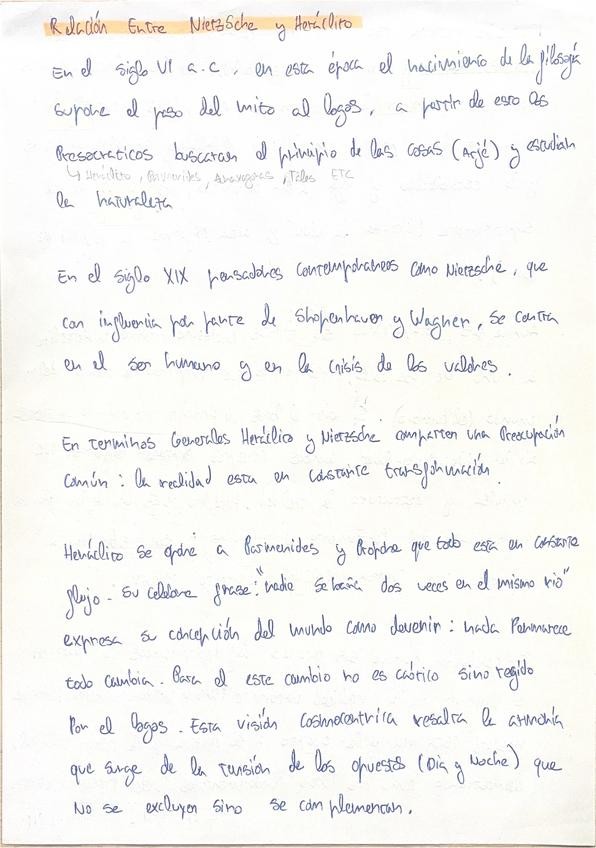 Relación Entre Nietzsche y Heráclito
En el siglo VI a.c, en esta época el nacimiento de la filosofía
supone el paso del mito al logos, a partir de esto los
Presocraticos buscaran el principio de las cosas (Arjé) y estudian
↳ Heráclito, Parmenides, Anaxagoras, Tales ETC
la naturaleza
En el siglo XIX pensadores contemporaneos como Nietzsche, que
con influencia por parte de Shopenhauer y Wagner, se centra
en el ser humano y en la crisis de los valores.
En terminos Generales Heráclito y Nietzsche comparten una Preocupación
común: la realidad esta en constante transformación
Heráclito se opone a Parmenides y Propone que todo esta en constante
flujo. Su celebre frase: "nadie se baña dos veces en el mismo rio"
expresa su concepción del mundo como devenir: nada Permanece
todo cambia. Para el este cambio no es caótico sino regido
Por el logos. Esta visión cosmocentrica resalta la armonía
que surge de la tensión de los opuestos (Dia y Noche) que
No se excluyen sino se complementan.